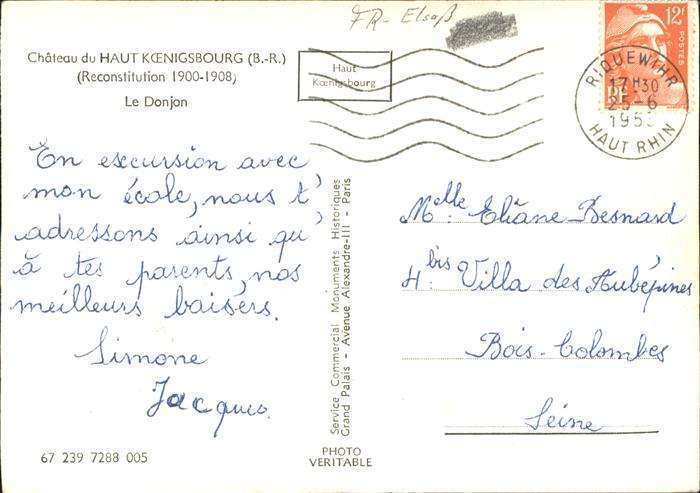 FR- Elsaß
Château du HAUT KŒNIGSBOURG (B.-R.)
(Reconstitution 1900-1908)
Le Donjon
Haut
Kœnigsbourg
12F
POSTES
RF
RIQUEWIHR
17H30
25-6
195
HAUT RHIN
En excursion avec
mon école, nous t'
adressons ainsi qu'
à tes parents, nos
meilleurs baisers.
Simone
Jacques.
67 239 7288 005
Service Commercial Monuments Historiques
Grand Palais - Avenue Alexandre-III - Paris
PHOTO
VERITABLE
Melle: Eliane Besnard
4 bis Villa des Aubépines
Bois-Colombes
Seine